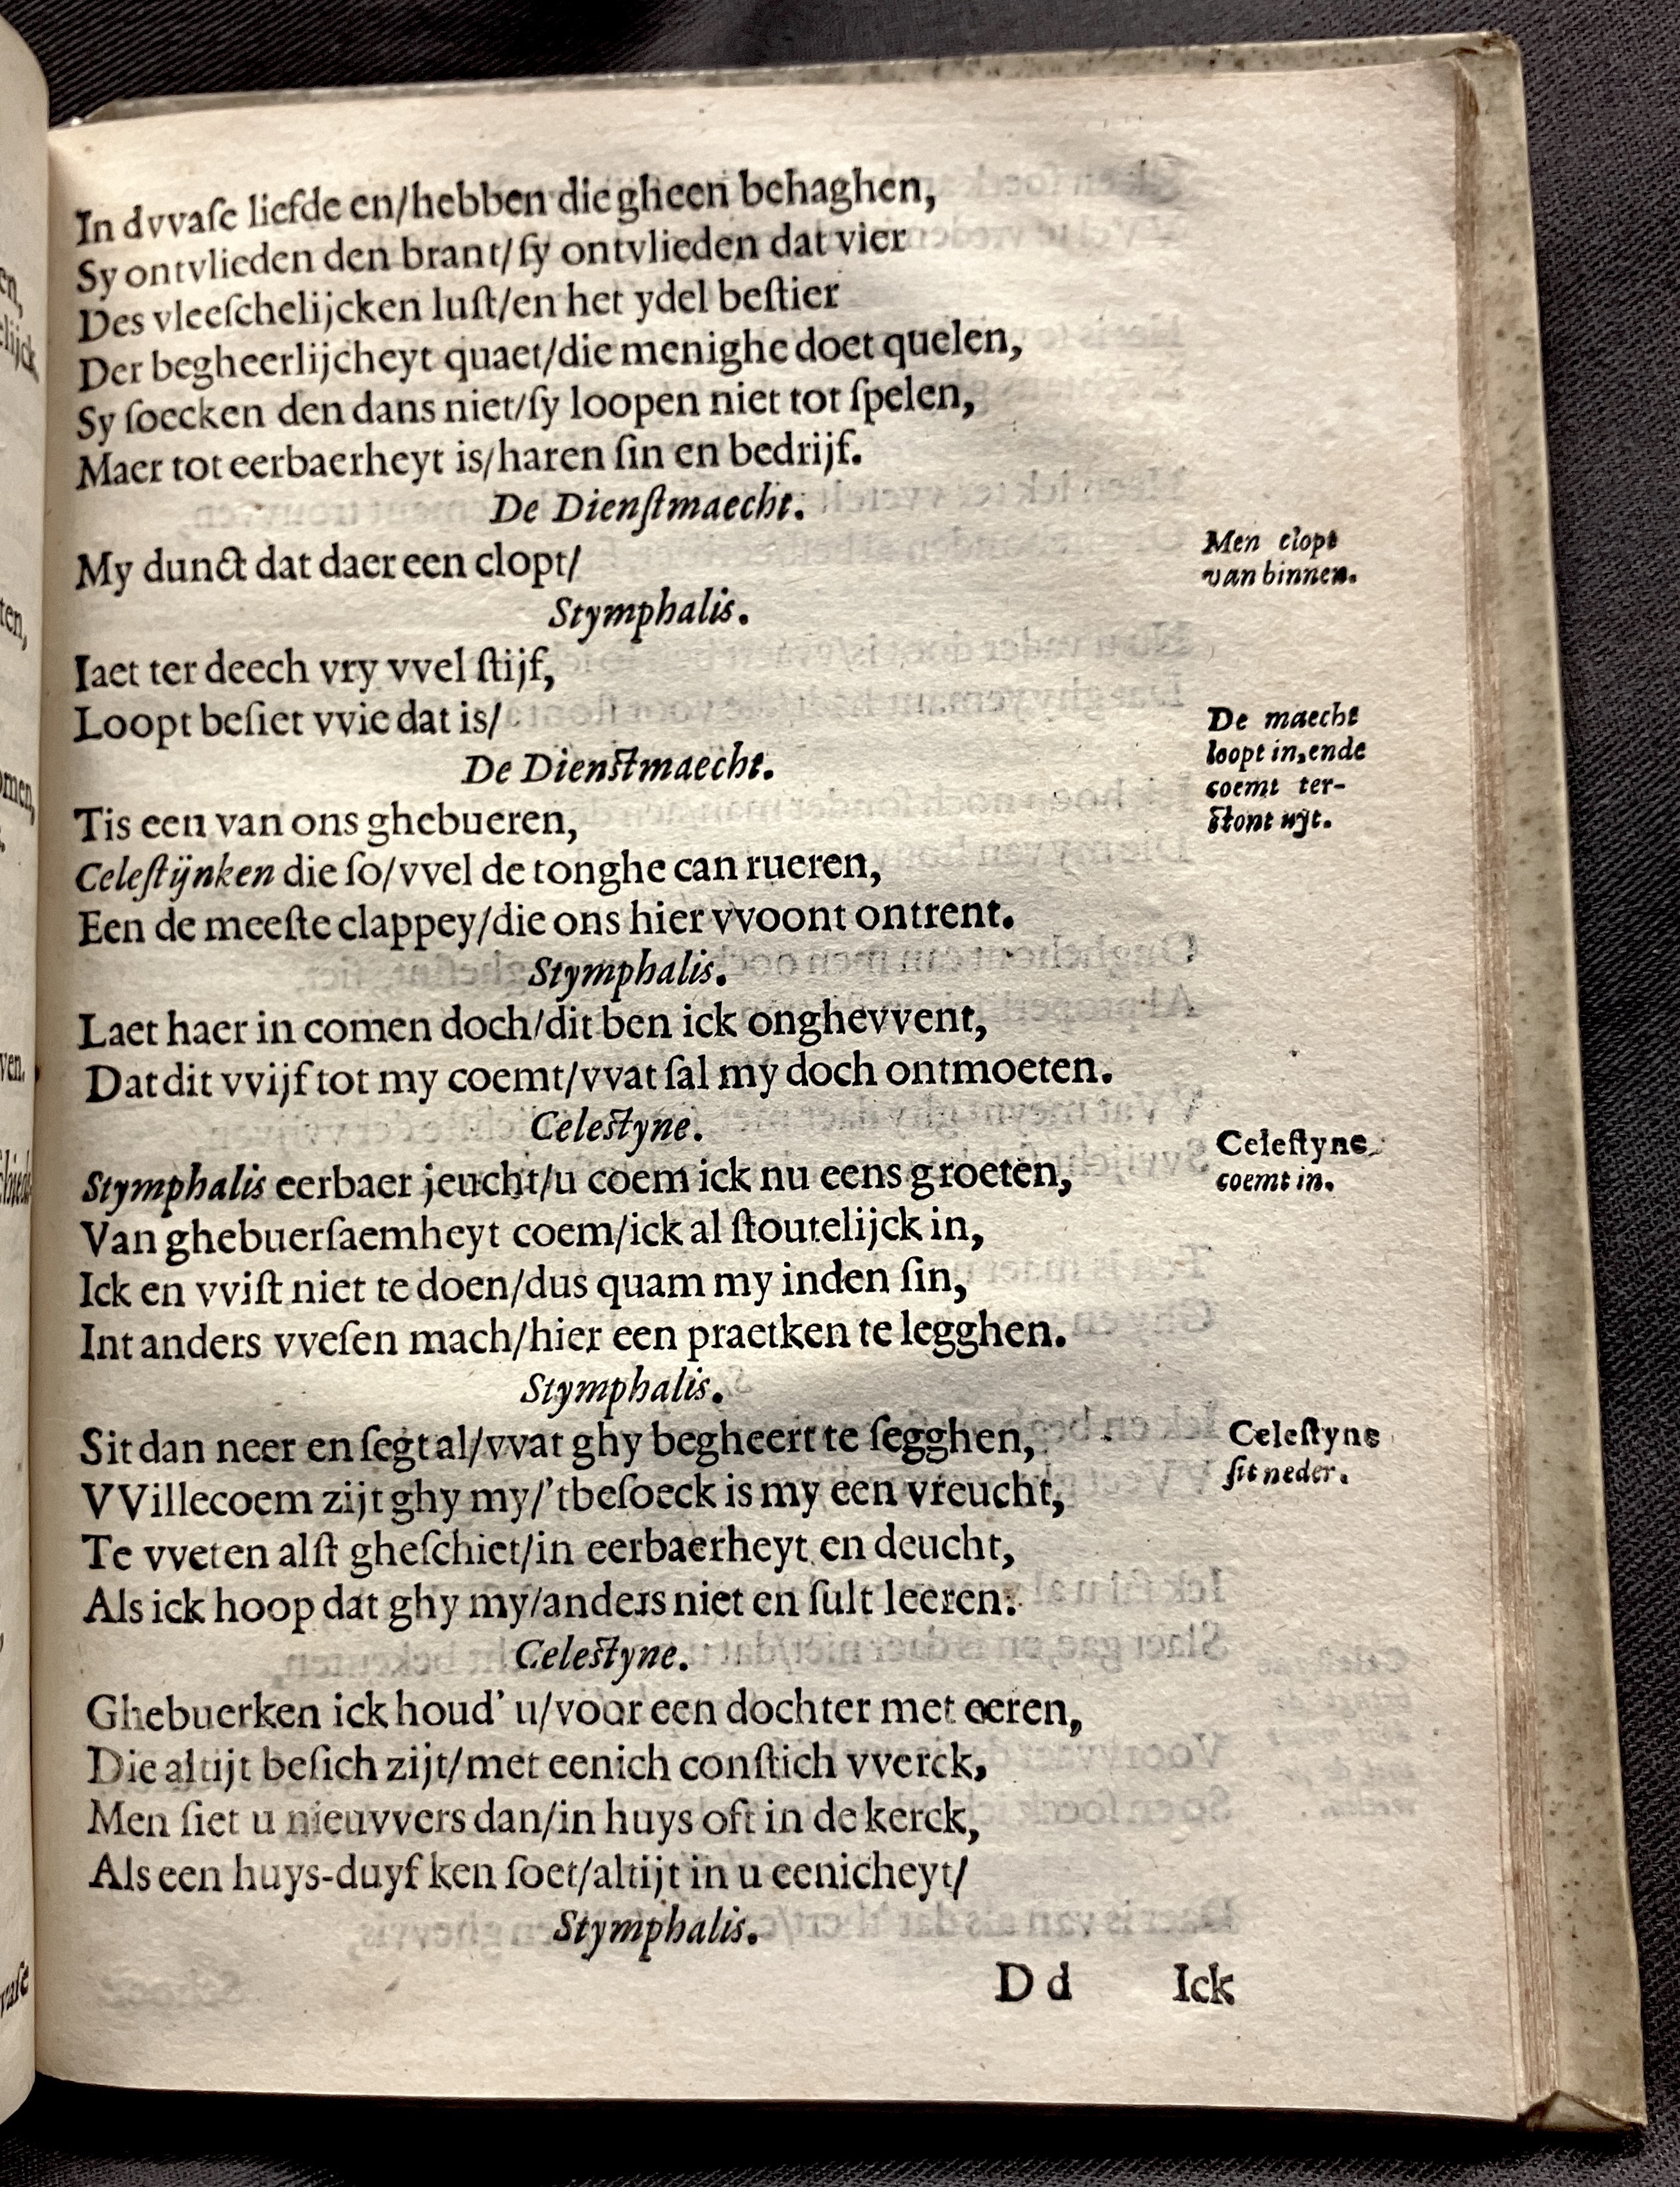 In dvvaſe liefde en/hebben die gheen behaghen,
Sy ontvlieden den brant/ſy ontvlieden dat vier
Des vleeſchelijcken luſt/en het ydel beſtier
Der begheerlijcheyt quaet/die menighe doet quelen,
Sy ſoecken den dans niet/ſy loopen niet tot ſpelen,
Maer tot eerbaerheyt is/haren ſin en bedrijf.
De Dienſtmaecht.
My dunct dat daer een clopt/
Men clopt
van binnen.
Stymphalis.
Iaet ter deech vry vvel ſtijf,
Loopt beſiet vvie dat is/
De maecht
loopt in, ende
coemt ter-
ſtont uyt.
De Dienſtmaecht.
Tis een van ons ghebueren,
Celeſtijnken die ſo/vvel de tonghe can rueren,
Een de meeſte clappey/die ons hier vvoont ontrent.
Stymphalis.
Laet haer in comen doch/dit ben ick onghevvent,
Dat dit vvijf tot my coemt/vvat ſal my doch ontmoeten.
Celeſtyne.
Celeſtyne
coemt in.
Stymphalis eerbaer jeucht/u coem ick nu eens groeten,
Van ghebuerſaemheyt coem/ick al ſtoutelijck in,
Ick en vviſt niet te doen/dus quam my inden ſin,
Int anders vveſen mach/hier een praetken te legghen.
Stymphalis.
Sit dan neer en ſegt al/vvat ghy begheert te ſegghen,
Celeſtyne
ſit neder.
VVillecoem zijt ghy my/'tbeſoeck is my een vreucht,
Te vveten alſt gheſchiet/in eerbaerheyt en deucht,
Als ick hoop dat ghy my/anders niet en ſult leeren.
Celeſtyne.
Ghebuerken ick houd' u/voor een dochter met eeren,
Die altijt beſich zijt/met eenich conſtich vverck,
Men ſiet u nieuvvers dan/in huys oft in de kerck,
Als een huys-duyf ken ſoet/altijt in u eenicheyt/
Stymphalis.
D d Ick